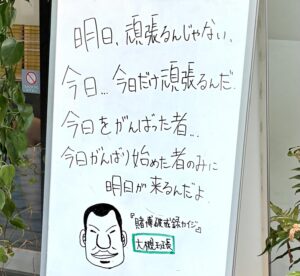 明日、頑張るんじゃない、
今日...今日だけ頑張るんだ.
今日をがんばった者...
今日がんばり始めた者のみに
明日が来るんだよ
『賭博破戒録カイジ』
大槻班長